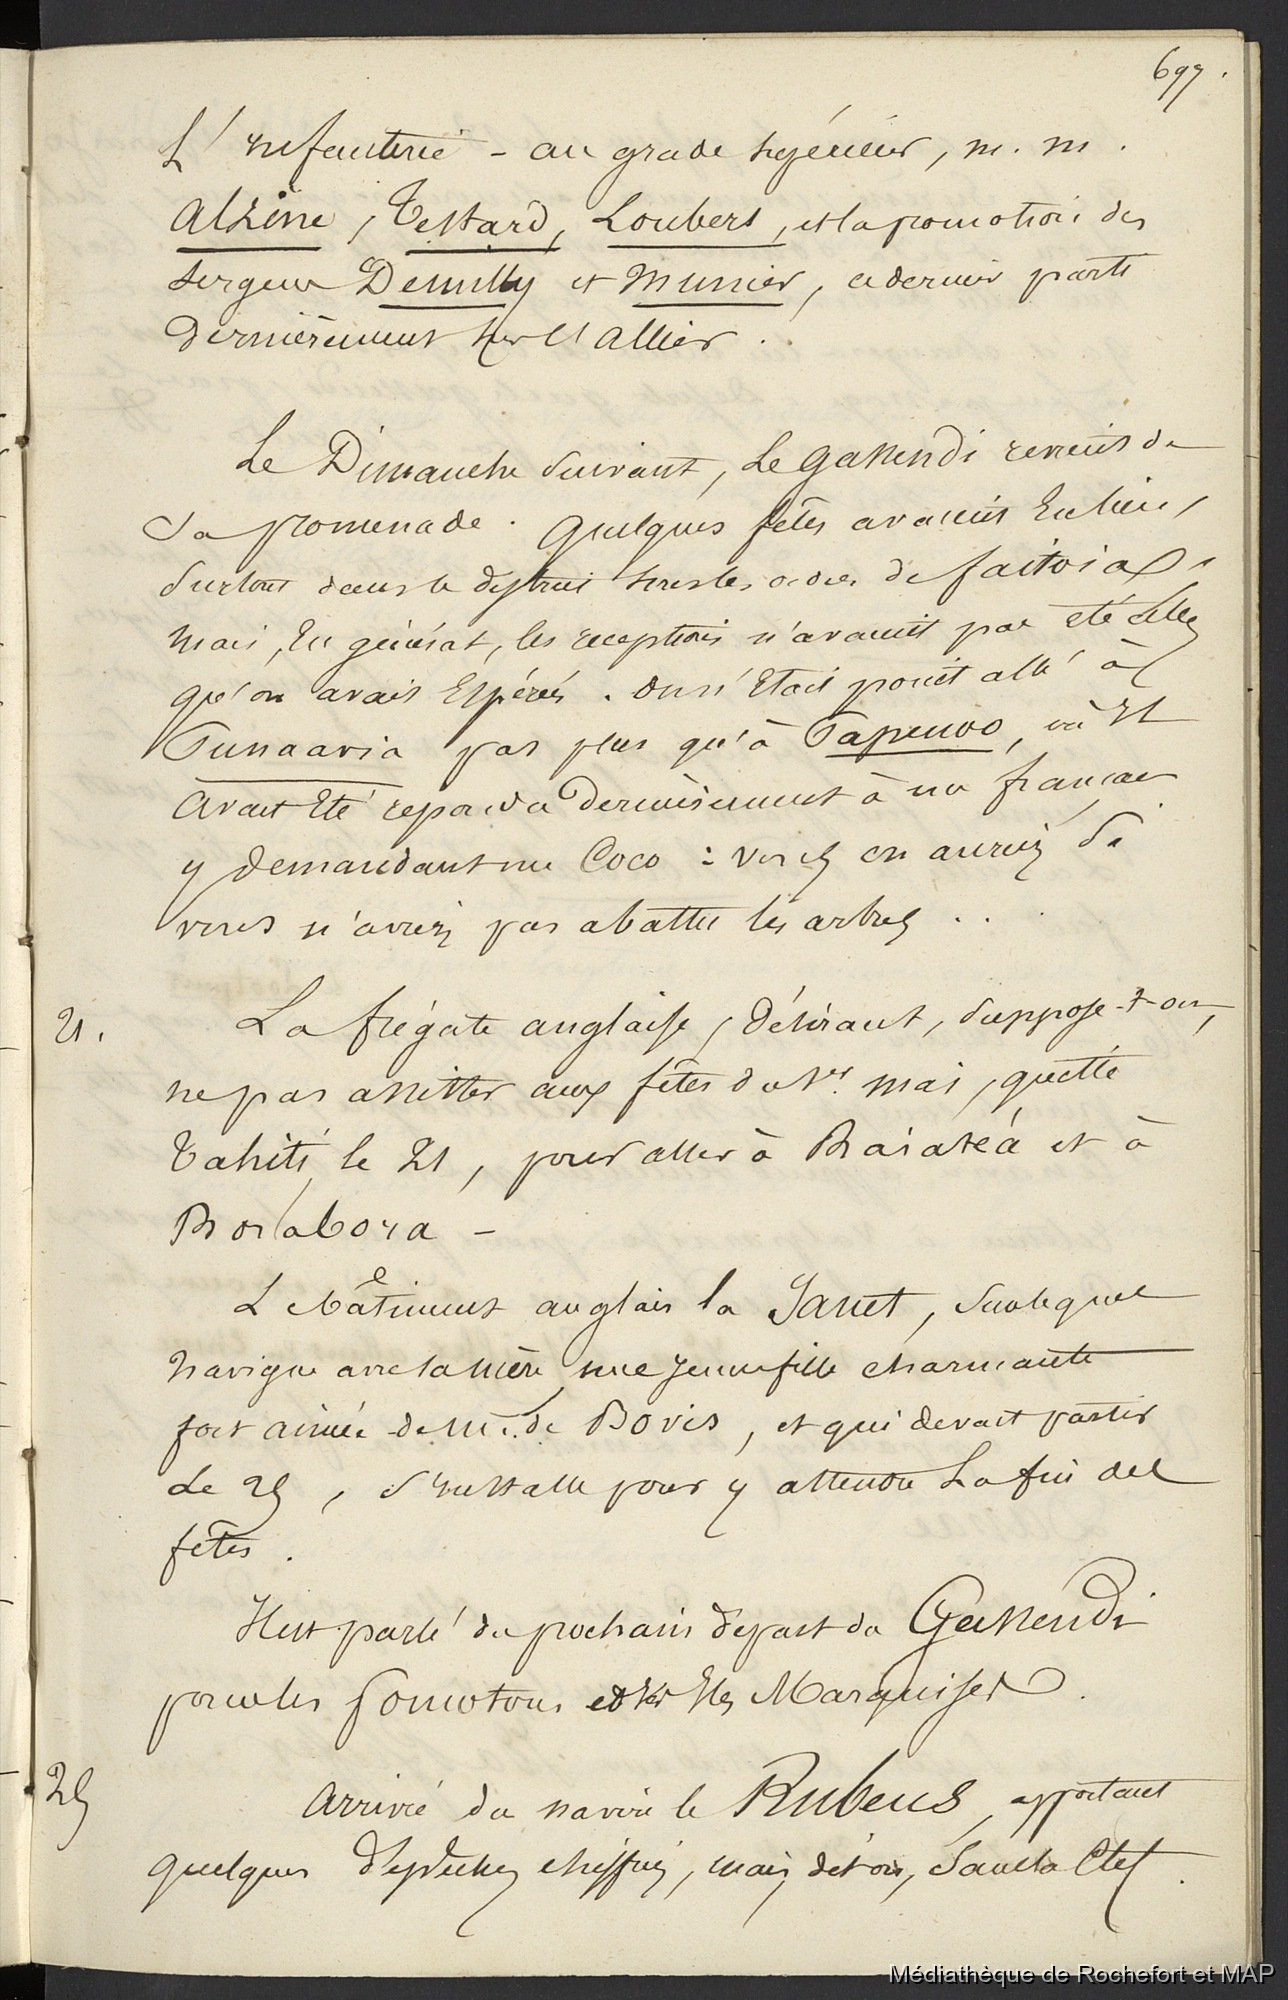 697.
L'infanterie - au grade supérieur, m. m.
Alzine, Testard, Loubert, et la promotion des
sergens Demilly et Munier, ce dernier parti
dernièrement sur l'Allier.
Le Dimanche suivant, le Gassendi revenait de
sa promenade. quelques fêtes avaient eu lieu,
surtout dans le district sous les ordres de
mais, en général, les réceptions n'avaient pas été celles
qu'on avait espérées. on n'était point allé à
Punaavia pas plus qu'à Papenoo, où il
avait été répondu dernièrement à un français
y demandant un Coco : vous en auriez si
vous n'aviez pas abattu les arbres . .
21. La frégate anglaise, désirant, suppose-t-on,
ne pas assister aux fêtes du 1er. mai, quitte
Tahiti le 21, pour aller à Raiatéa et à
Borabora -
Le bâtiment anglais la Janet, sur lequel
navigue avec sa mère une jeune fille charmante
fort aimée de M. de Bovis, et qui devait partir
le 25, s'installe pour y attendre la fin des
fêtes.
Il est parlé du prochain départ du Gassendi
pour les Pomotous et les Iles Marquises.
25 Arrivée du navire le Rubens, apportant
quelques dépêches chiffrées, mais, dit on, sans la Clef.
Médiathèque de Rochefort et MAP